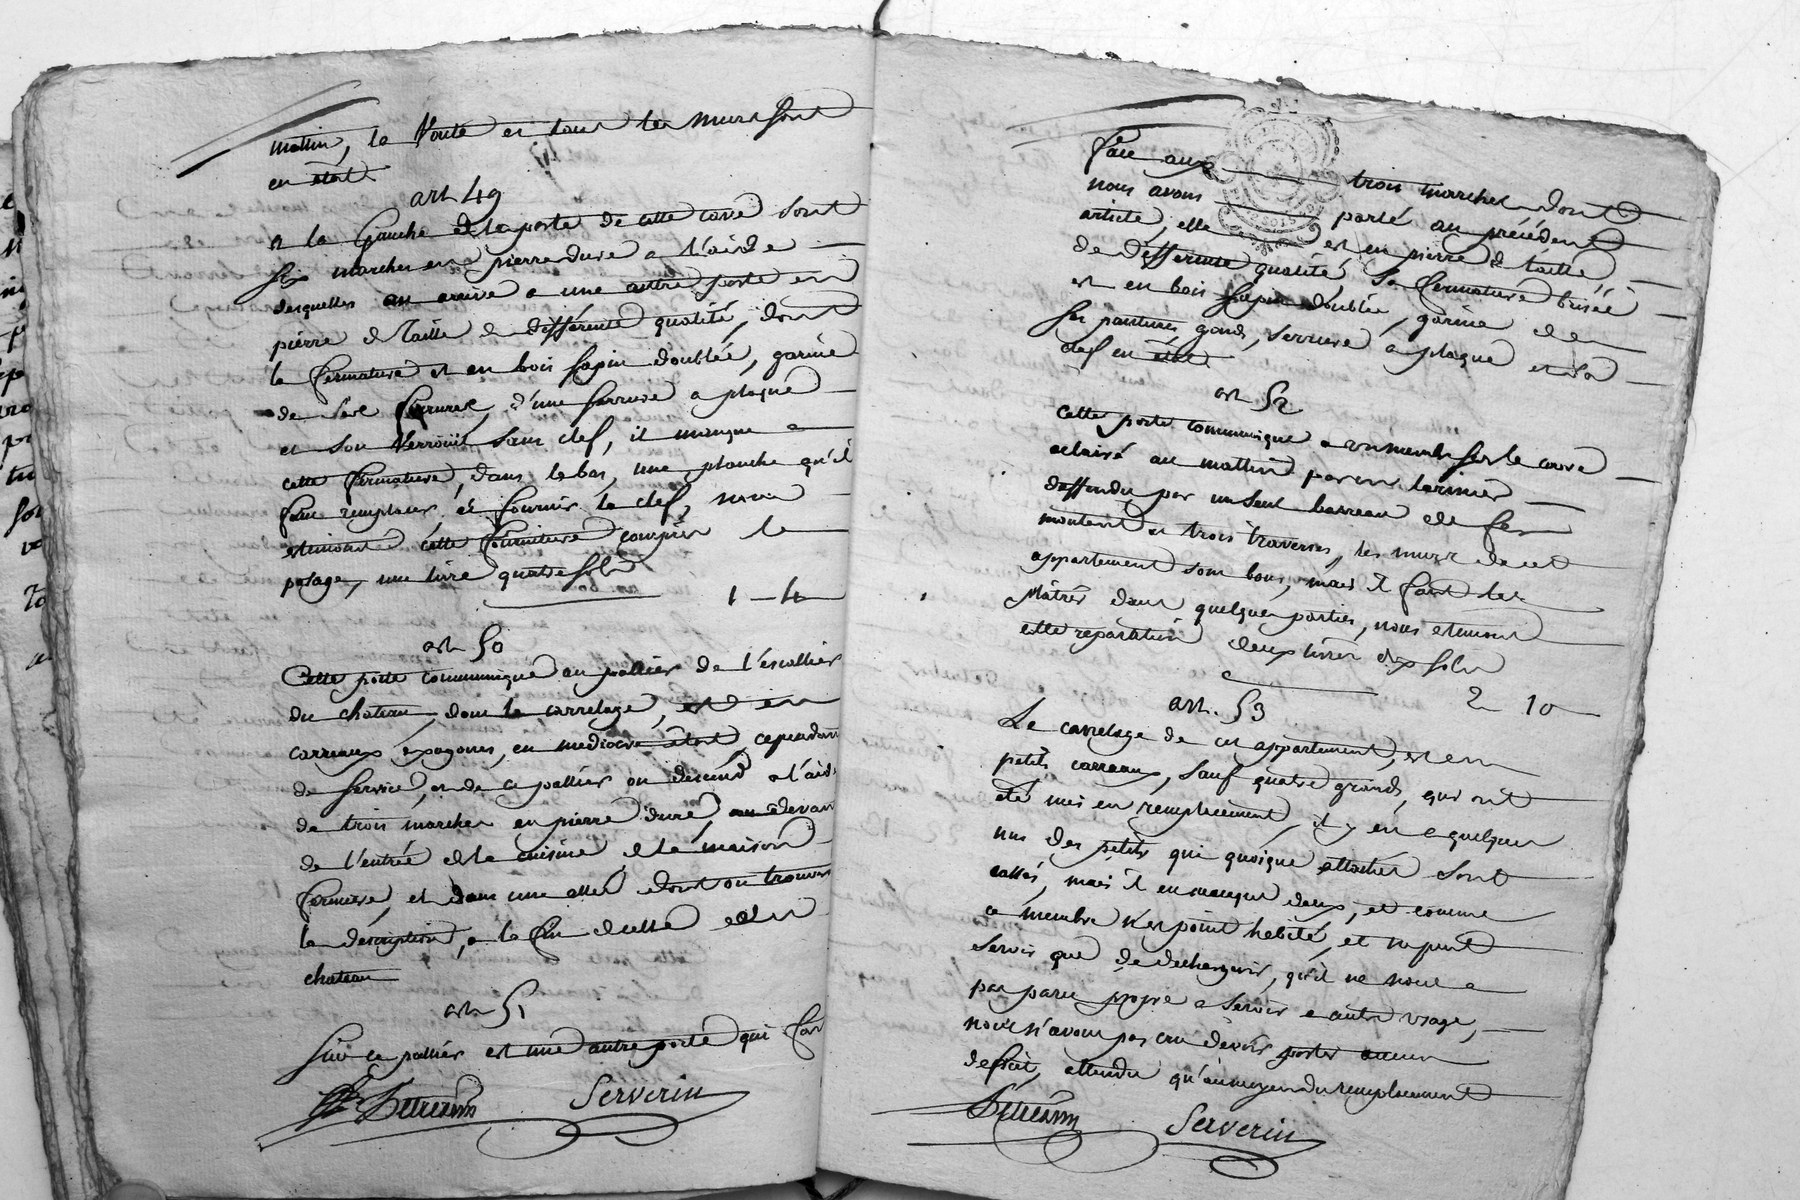 mattin, la Voute et tous les murs sont
en état
art. 49
a la Gauche de la porte de cette cave sont
six marches en pierre dure a l'aide
desquelles on arrive a une autre porte en
pierre de Taille de différente qualité, dont
la fermature est en bois sapin doublée, garnie
de ses ferrures, d'une serrure a plaque
et son Verrouil sans clef, il manque a
cette fermature, dans le bas, une planche qu'il
faut remplacer et fournir la clef, nous
estimons cette fourniture compris le
posage, une livre quatre sols
1 - 4
art. 50
Cette porte communique au pallier de l'escallier
du chateau, dont le carrelage, est en
carreaux éxagones, en mediocre état cependant
de service, et de ce pallier on descend a l'aide
de trois marches en pierre dure, au devant
de l'entrée de la cuisine de la maison
fermiere, et dans une allée dont on trouvera
la description, a la fin de celle du
chateau
art. 51
Sur ce pallier est une autre porte qui fait
Serverin
face aux trois marches dont
nous avons parlé au précédent
article, elle est en pierre de taille
de differente qualité, Sa fermature brisée
est en bois sapin doublée, garnie de
ses pantures, gonds, serrure a plaque et sa
clef en état
art. 52
cette porte communique a un membre sur le cave
eclairé au mattin par un larmier
deffendu par un seul barreau de fer
montant et trois traverses, les murs de cet
appartement sont bons, mais il faut les
platrer dans quelques parties, nous estimons
cette reparation deux livres dix sols
2 10
art. 53
Le carrelage de cet appartement, est en
petits carreaux, sauf quatre grands, qui ont
été mis en remplacement, il y en a quelques
uns des petits qui quoique attachés sont
cassés, mais il en manque deux, et comme
ce membre n'est point habité, et ne peut
servir que de dechargeoir, qu'il ne nous a
pas paru propre a servir a autre usage,
nous n'avons pas cru devoir porter aucun
deficit, attendu qu'au moyen du remplacement
Serverin